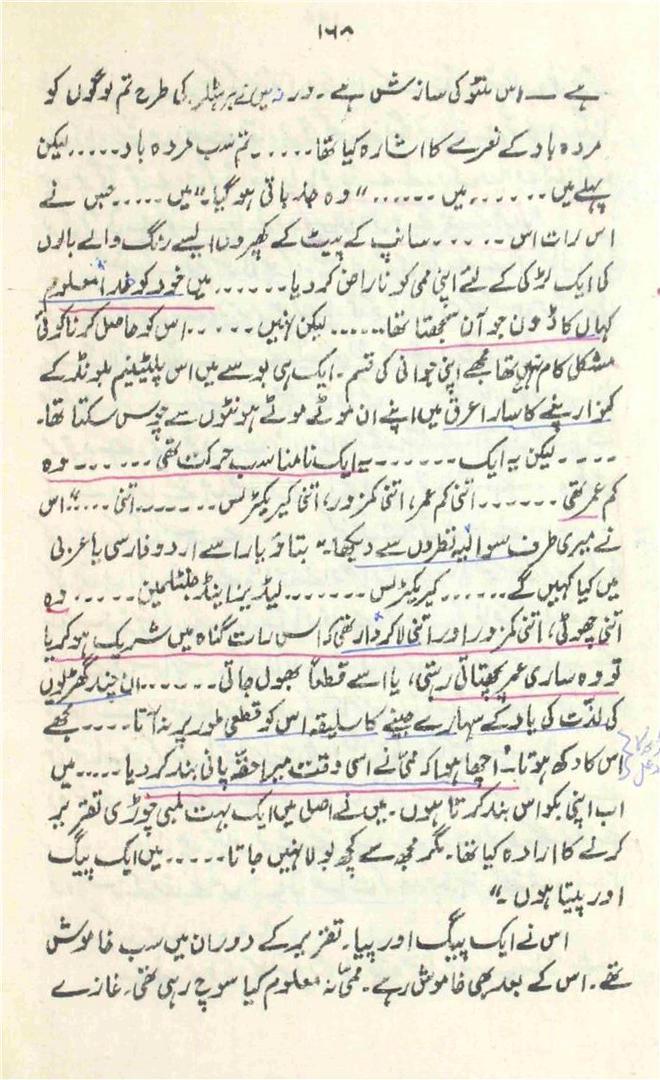 ۱۶۸
ہے — اس منٹو کی سازش ہے۔ ورنہ میں نے ہر ہٹلر کی طرح تم لوگوں کو
مردہ باد کے نعرے کا اشارہ کیا تھا..... تم سب مردہ باد..... لیکن
پہلے میں...... میں ......" وہ جذباتی ہو گیا۔" میں ..... جس نے
اس رات اس ..... سانپ کے پیٹ کے کھپروں ایسے رنگ والے بالوں
کی ایک لڑکی کے لئے اپنی ممی کو ناراض کر دیا...... میں خود کو خدا معلوم
کہاں کا ڈون جو آن سمجھتا تھا...... لیکن نہیں ..... اس کو حاصل کرنا کوئی
مشکل کام نہیں تھا مجھے اپنی جوانی کی قسم۔ ایک ہی بوسے میں اس پلیٹینم بلونڈ کے
کنوارپنے کا سارا عرق میں اپنے ان موٹے موٹے ہونٹوں سے چوس سکتا تھا۔
.... لیکن یہ ایک ...... یہ ایک نامناسب حرکت تھی...... وہ
کم عمر تھی ...... اتنی کم عمر، اتنی کمزور، اتنی کیریکٹرلس...... اتنی ...." اس
نے میری طرف سوالیہ نظروں سے دیکھا۔" بتاؤ یار اسے اردو فارسی یا عربی
میں کیا کہیں گے...... کیریکٹرلس ...... لیڈیز اینڈ جنٹلمین..... وہ
اتنی چھوٹی، اتنی کمزور اور اتنی لاکردار تھی کہ اس رات گناہ میں شریک ہو کر یا
تو وہ ساری عمر پچھتاتی رہتی، یا اسے قطعاً بھول جاتی...... ان چند گھڑیوں
کی لذت کی یاد کے سہارے جینے کا سلیقہ اس کو قطعی طور پر نہ آتا.... مجھے
اس کا دکھ ہوتا۔ اچھا ہوا کہ ممی نے اسی وقت میرا حقہ پانی بند کر دیا..... میں
اب اپنی بکواس بند کرتا ہوں۔ میں نے اصل میں ایک بہت لمبی چوڑی تقریر
کرنے کا ارادہ کیا تھا۔ مگر مجھ سے کچھ بولا نہیں جاتا..... میں ایک پیگ
اور پیتا ہوں۔"
اس نے ایک پیگ اور پیا۔ تقریر کے دوران میں سب خاموش
تھے۔ اس کے بعد بھی خاموش رہے۔ ممی نہ معلوم کیا سوچ رہی تھی۔ غازے